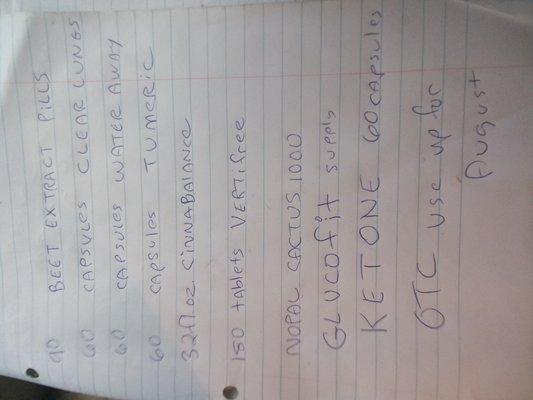 90 BEET EXTRACT PILLS
60 CAPSULES CLEAR LUNGS
60 CAPSULES WATER AWAY
60 CAPSULES TUMERIC
32fl.oz CINNABALANCE
150 tablets VERTIfree
NOPAL CACTUS 1000
GLUCOfit supply
KETONE 60 capsules
OTC use up for
August